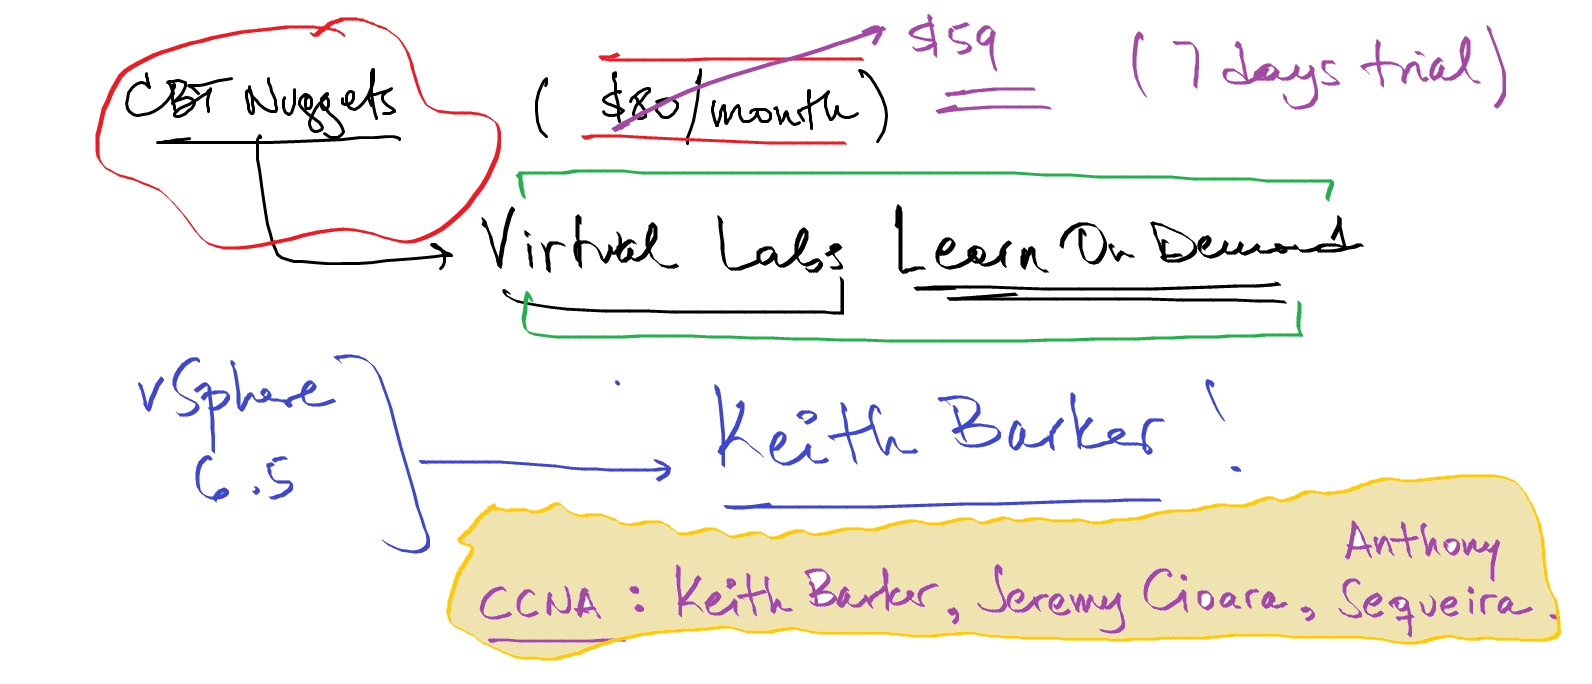 CBT Nuggets ( $80/month ) $59 ( 7 days trial )
Virtual Labs Learn On Demand
vSphere
6.5
Keith Barker !
CCNA : Keith Barker, Jeremy Cioara, Anthony Sequeira.